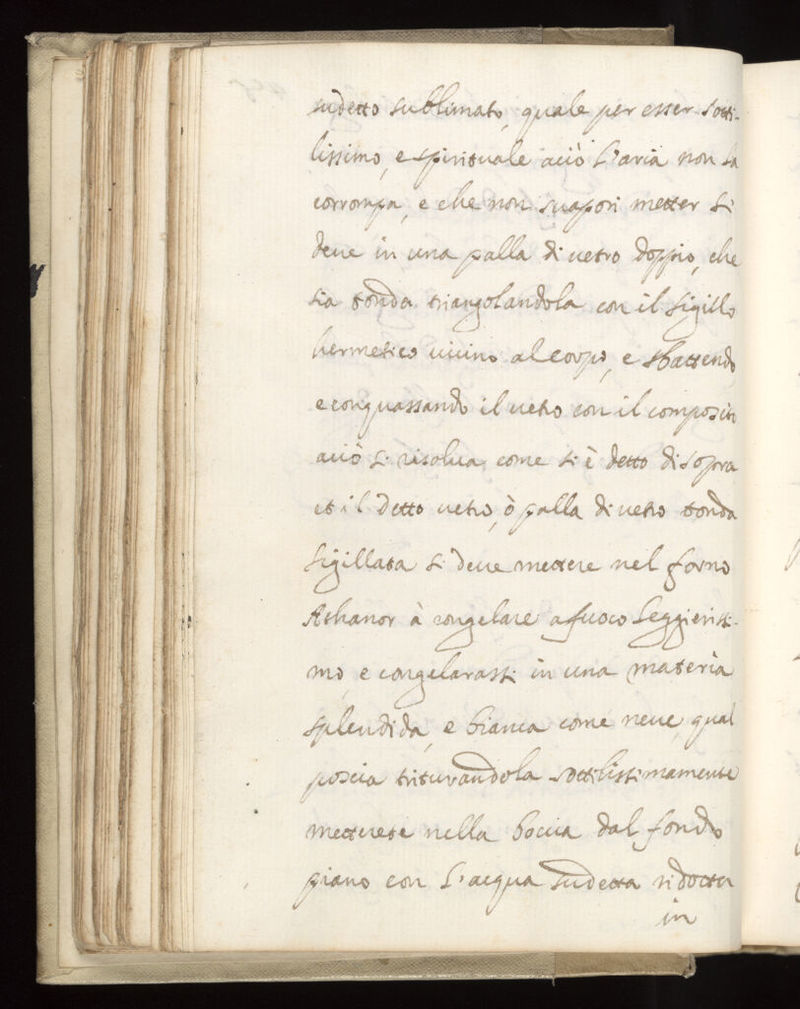 sudetto sublimato, quale per esser sotti-
lissimo, e spirituale acciò l'aria non la
corrompa, e che non suapori metter si
deue in una palla di uetro doppio, che
sia tonda triangolandola con il sigillo
hermetico uicino al corpo, e sbattendo
e conquassando il uetro con il composito
acciò si risolua, come si è detto di sopra
et il detto uetro, ò palla di uetro tonda
sigillata si deue mettere nel forno
Athanor à congelare a fuoco leggierissi-
mo, e congelarassi in una materia
splendida, e bianca come neue, qual
poscia triturandola sottilissimamente
metterete nella boccia dal fondo
piano con l'acqua sudetta ridotta
in